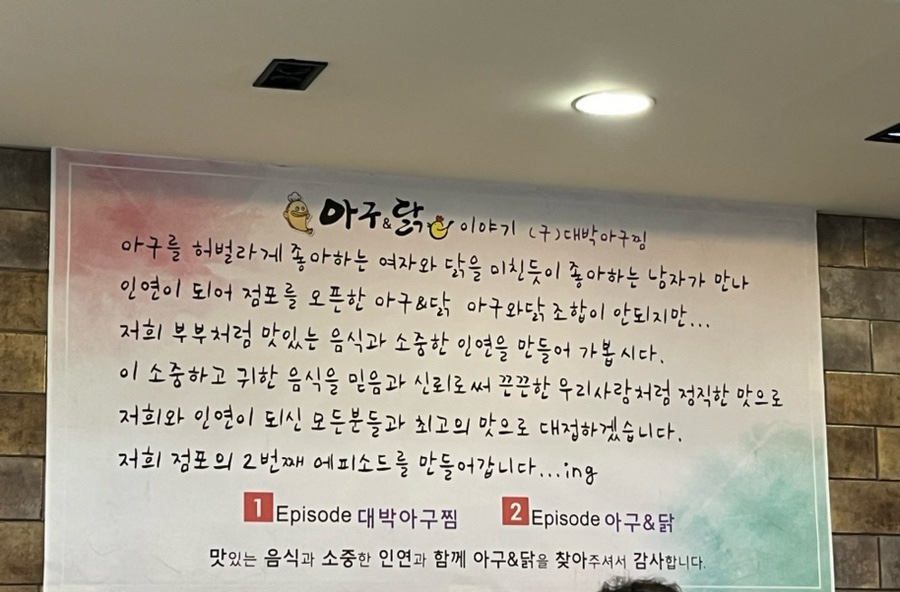 아구&닭 이야기 (구)대박아구찜
아구를 허벌라게 좋아하는 여자와 닭을 미친듯이 좋아하는 남자가 만나
인연이 되어 점포를 오픈한 아구&닭 아구와닭 조합이 안되지만...
저희 부부처럼 맛있는 음식과 소중한 인연을 만들어 가봅시다.
이 소중하고 귀한 음식을 믿음과 신뢰로써 끈끈한 우리사람처럼 정직한 맛으로
저희와 인연이 되신 모든분들과 최고의 맛으로 대접하겠습니다.
저희 점포의 2번째 에피소드를 만들어갑니다...ing
1 Episode 대박아구찜 2 Episode 아구&닭
맛있는 음식과 소중한 인연과 함께 아구&닭을 찾아주셔서 감사합니다.